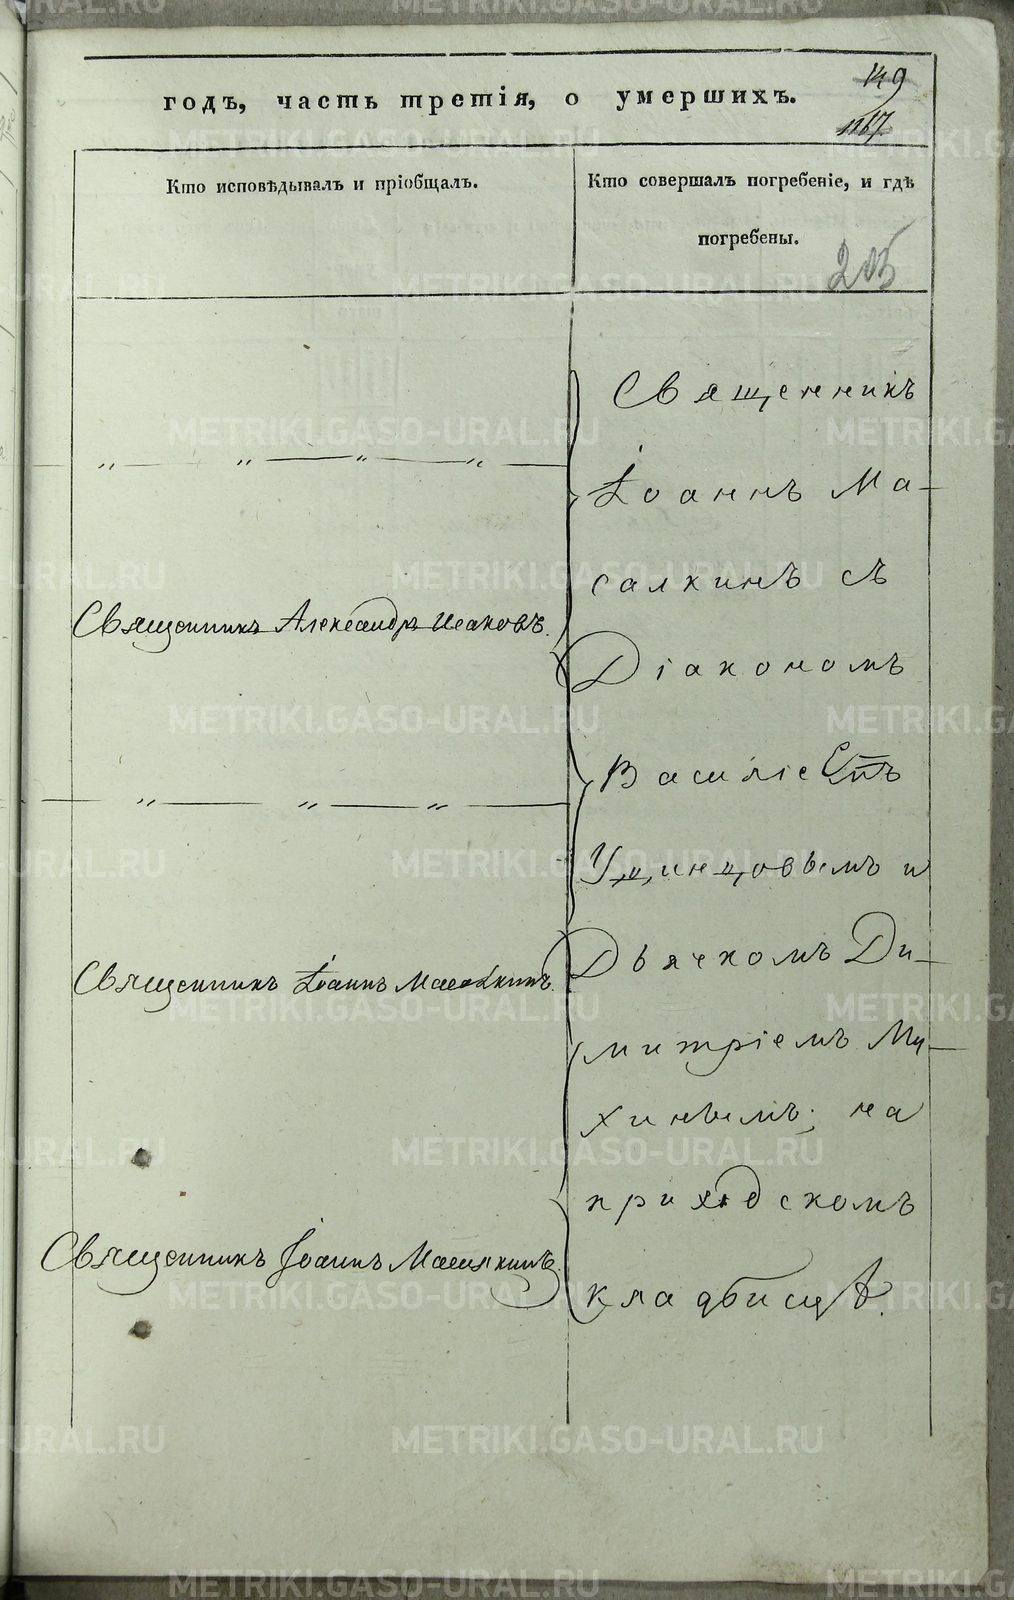 годъ, часть третія, о умершихъ.
149
Кто исповѣдывалъ и пріобщалъ.
Кто совершалъ погребеніе, и гдѣ
погребены.
205
Священникъ
Іоаннъ Ма-
салкинъ съ
Діакономъ
Василіе
Ущинцовымъ и
Дьячкомъ Ди-
митріемъ Ми-
хинымъ; на
приходскомъ
кладбищѣ.
" " " "
Священникъ Александръ Исаковъ.
" " "
Священникъ Іоаннъ Масалкинъ.
Священникъ Іоаннъ Масалкинъ.
METRIKI.GASO-URAL.RU